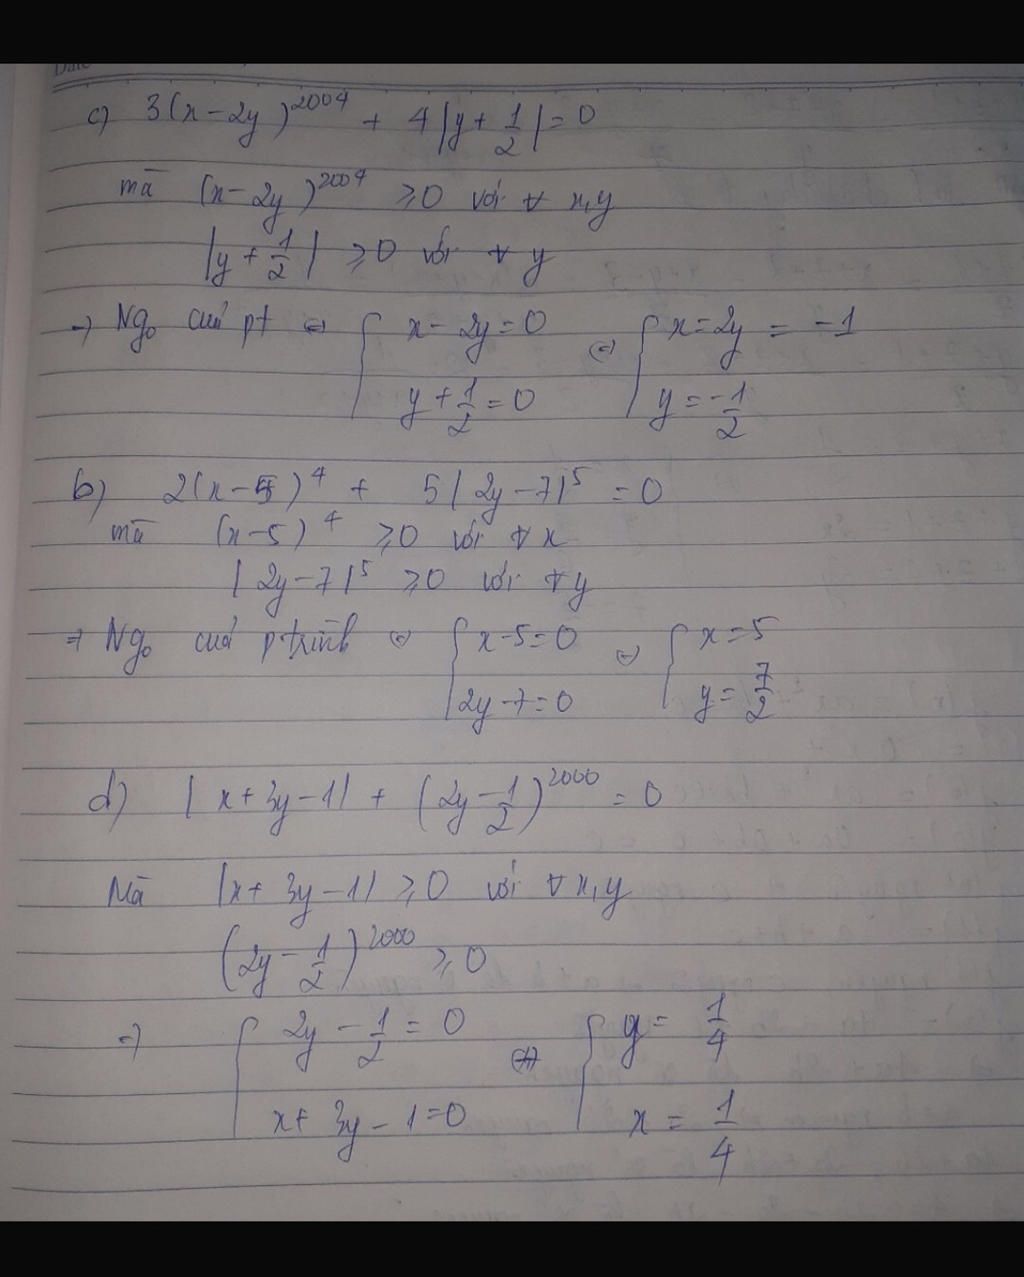 Date
c) 3(x-2y)^2004 + 4|y+1/2|=0
mà (x-2y)^2004 ≥0 với ∀ x,y
|y+1/2| ≥0 với ∀ y
→ Ngo cuả pt ⇔ { x-2y=0 ; y+1/2=0 ⇔ { x=2y = -1 ; y=-1/2
b) 2(x-5)^4 + 5|2y-7|^5 =0
mà (x-5)^4 ≥0 với ∀x
|2y-7|^5 ≥0 với ∀y
⇒ Ngo cuả ptrình ⇔ { x-5=0 ; 2y-7=0 ⇔ { x=5 ; y=7/2
d) |x+3y-1| + (2y-1/2)^2000 =0
Mà |x+3y-1| ≥0 với ∀x,y
(2y-1/2)^2000 ≥0
⇒ { 2y-1/2=0 ; x+3y-1=0 ⇔ { y=1/4 ; x=1/4